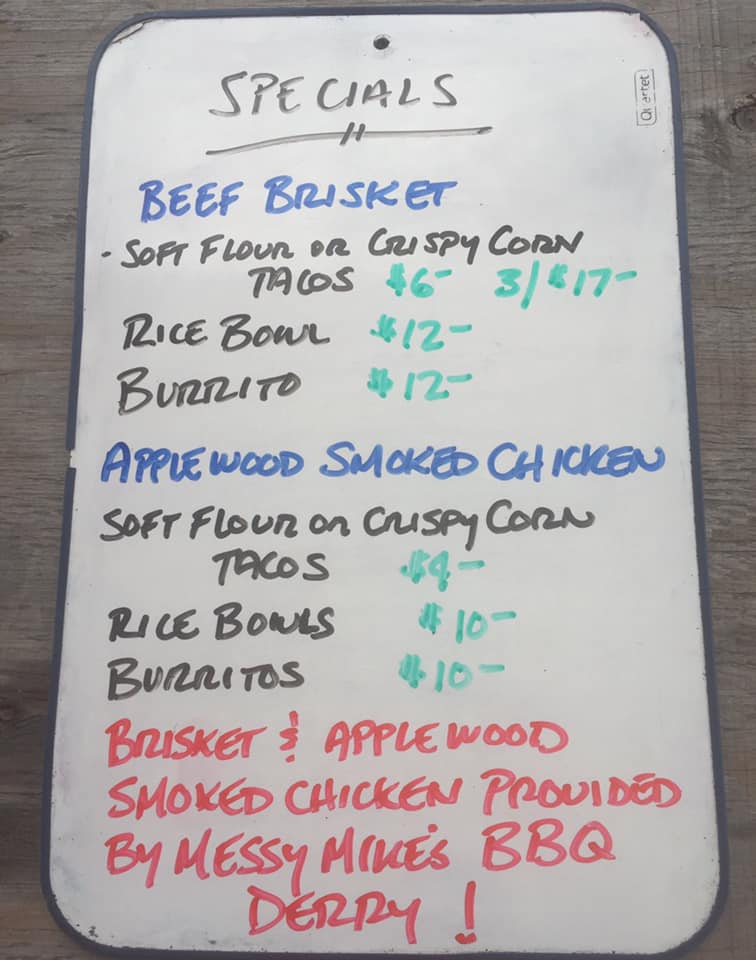 Quartet
SPECIALS
BEEF BRISKET
- SOFT FLOUR OR CRISPY CORN
TACOS $6- 3/$17-
RICE BOWL $12-
BURRITO $12-
APPLEWOOD SMOKED CHICKEN
SOFT FLOUR OR CRISPY CORN
TACOS $4-
RICE BOWLS $10-
BURRITOS $10-
BRISKET & APPLEWOOD
SMOKED CHICKEN PROVIDED
BY MESSY MIKE'S BBQ
DERRY!